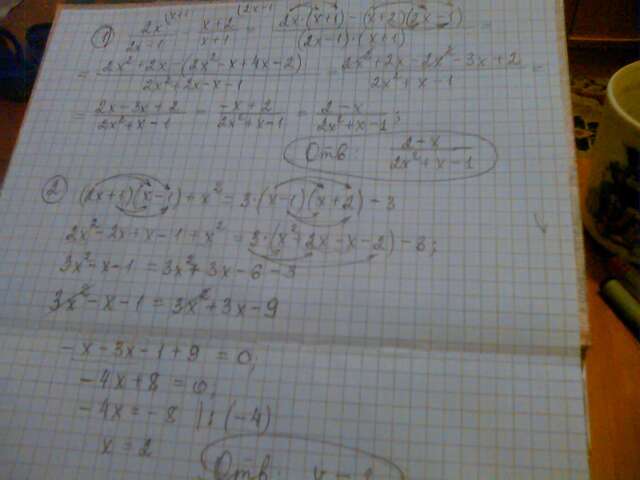 1) 2x/(2x-1) (x+1 - (x+2)/(x+1) (2x-1 = (2x·(x+1)-(x+2)(2x-1))/((2x-1)·(x+1)) =
= (2x²+2x-(2x²-x+4x-2))/(2x²+2x-x-1) = (2x²+2x-2x²-3x+2)/(2x²+x-1) =
= (2x-3x+2)/(2x²+x-1) = (-x+2)/(2x²+x-1) = (2-x)/(2x²+x-1);
Отв: (2-x)/(2x²+x-1)
2) (2x+1)(x-1)+x² = 3·(x-1)(x+2)-3
2x²-2x+x-1+x² = 3·(x²+2x-x-2)-3;
3x²-x-1 = 3x²+3x-6-3
3x²-x-1 = 3x²+3x-9
-x-3x-1+9 = 0;
-4x+8 = 0;
-4x = -8 |:(-4)
x = 2
Отв: